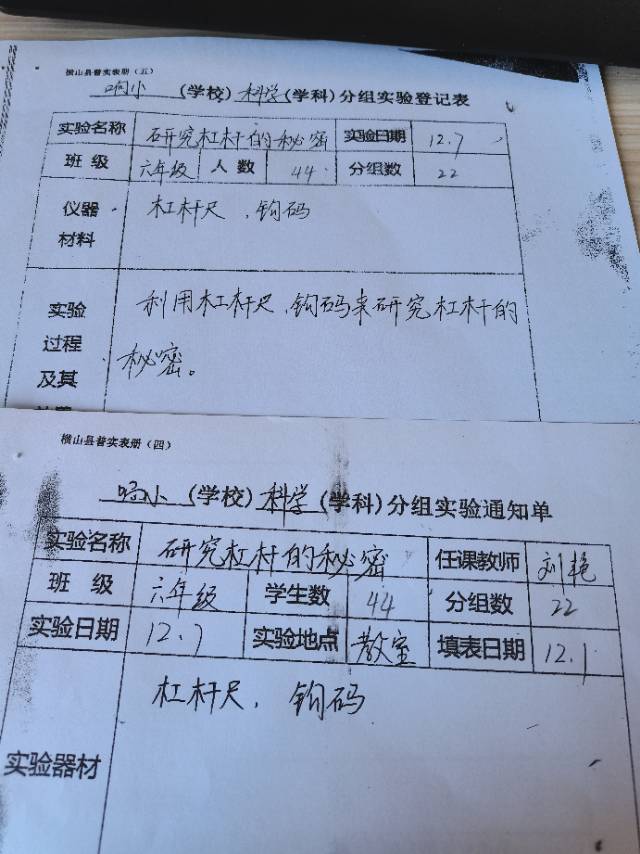 横山县普实表册（五）
响小（学校）科学（学科）分组实验登记表
实验名称 研究杠杆的秘密 实验日期 12.7
班 级 六年级 人 数 44 分组数 22
仪器材料 杠杆尺、钩码
实验过程及其 利用杠杆尺、钩码来研究杠杆的
秘密。
横山县普实表册（四）
响小（学校）科学（学科）分组实验通知单
实验名称 研究杠杆的秘密 任课教师 刘艳
班 级 六年级 学生数 44 分组数 22
实验日期 12.7 实验地点 教室 填表日期 12.1
实验器材 杠杆尺、钩码